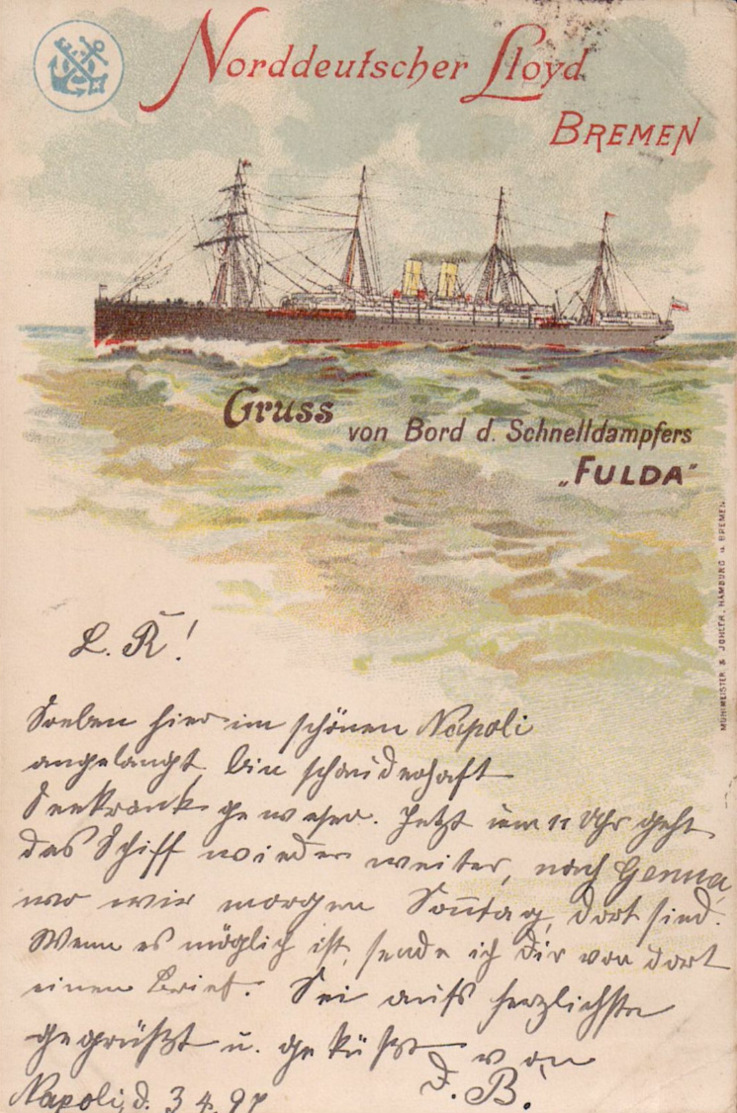 Norddeutscher Lloyd
BREMEN
Gruss
von Bord d. Schnelldampfers
„FULDA"
MÜHLMEISTER & JOHLER, HAMBURG u. BREMEN.
L. R̄!
Soeben hier im schönen Napoli
angelangt, bin schauderhaft
Seekrank gewesen. Jetzt um 11 Uhr geht
das Schiff wieder weiter, nach Genua,
wo wir morgen Sonntag, dort sind.
Wenn es möglich ist, sende ich Dir von dort
einen Brief. Sei aufs herzlichste
gegrüßt u. geküßt von
J. B.
Napoli, d. 3 4. 97